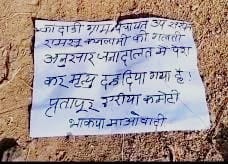 कादाडी ग्राम पंचायत उप सरपंच
रामसू कचलामी को गलती
अनुसार जनादालत में पेश
कर मृत्यु दण्ड दिया गया है!
प्रतापूर एरीया कमेटी
भाकपा माओवादी